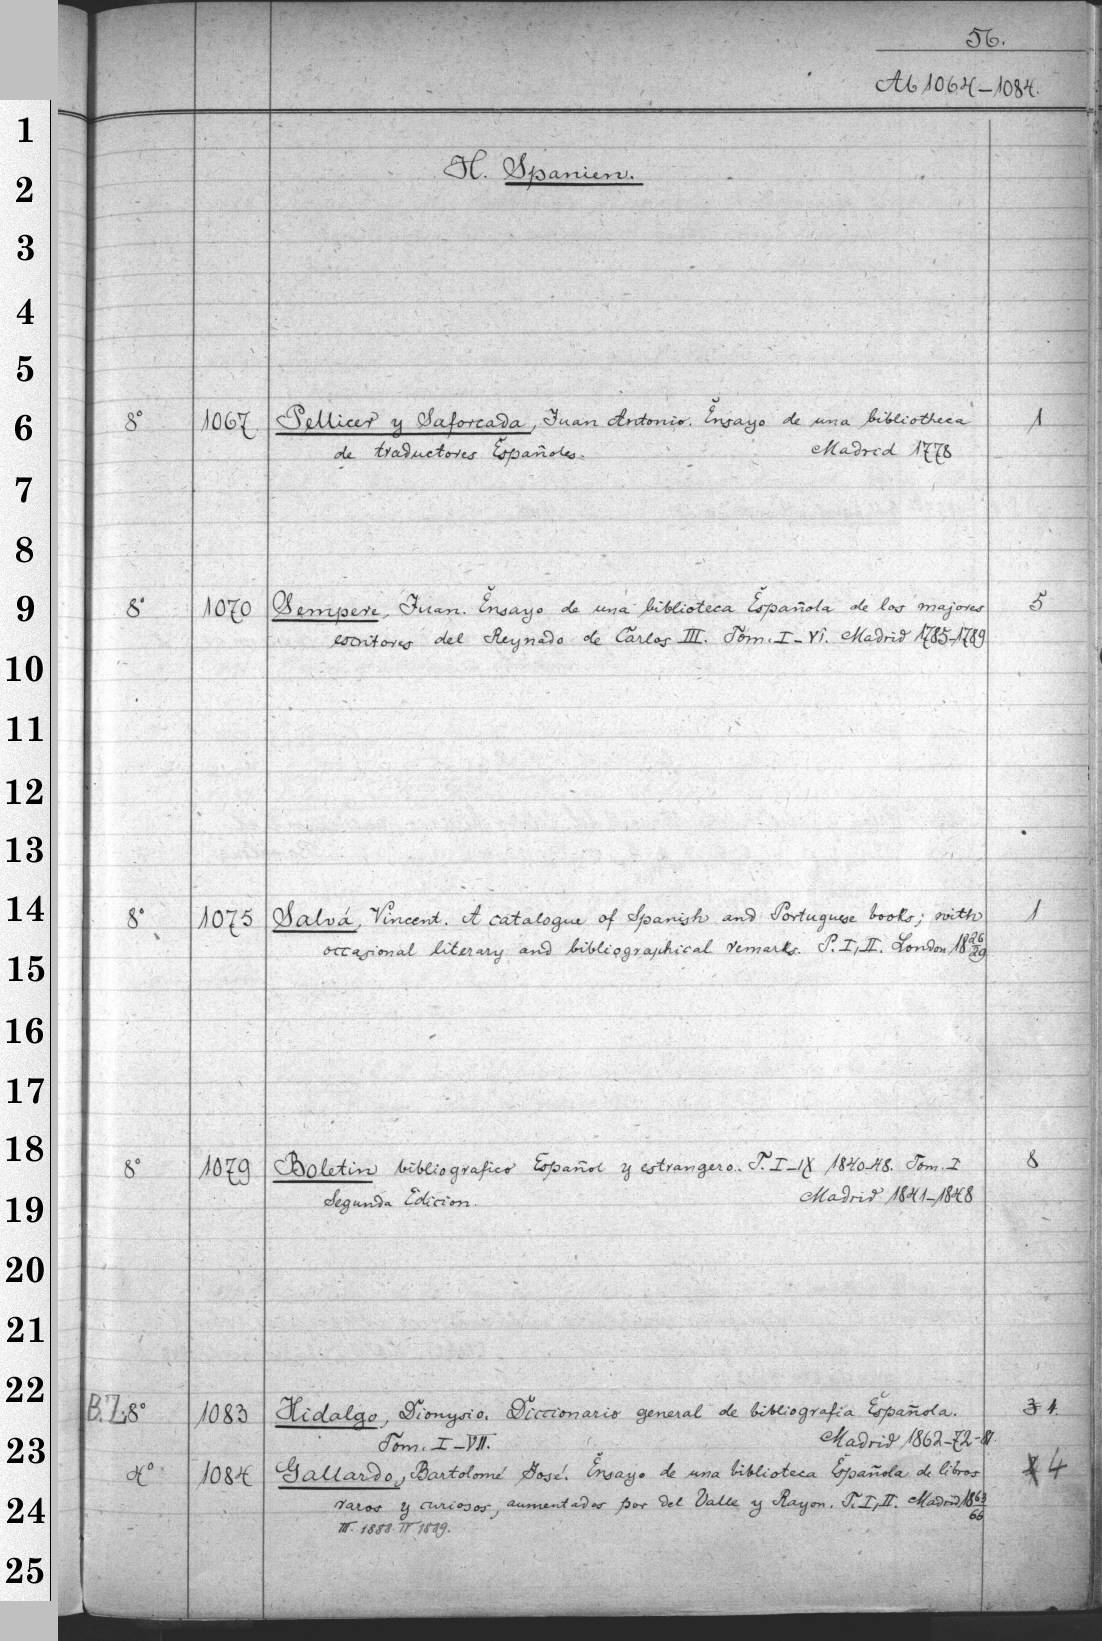 56.
Ab 1064-1084.
1
H. Spanien.
2
3
4
5
6 8° 1067 Pellicer y Saforcada, Juan Antonio. Ensayo de una bibliotheca 1
de traductores Españoles. Madrid 1778
7
8
9 8° 1070 Sempere, Juan. Ensayo de una biblioteca Española de los majores 5
escritores del Reynado de Carlos III. Tom. I-VI. Madrid 1785-1789
10
11
12
13
14 8° 1075 Salvá, Vincent. A catalogue of Spanish and Portuguese books; with 1
occasional literary and bibliographical remarks. P. I, II. London 1826/29
15
16
17
18 8° 1079 Boletin bibliografico Español y estrangero. T. I-IX 1840-48. Tom. I 8
Segunda Edicion. Madrid 1841-1848
19
20
21
22
B.Z. 8° 1083 Hidalgo, Dionysio. Diccionario general de bibliografia Española.
Tom. I-VII. Madrid 1862-72-81.
23 4° 1084 Gallardo, Bartolomé José. Ensayo de una biblioteca Española de libros 4
raros y curiosos, aumentados por del Valle y Rayon. T. I, II. Madrid 1863/66
24
III. 1888. IV 1889.
25